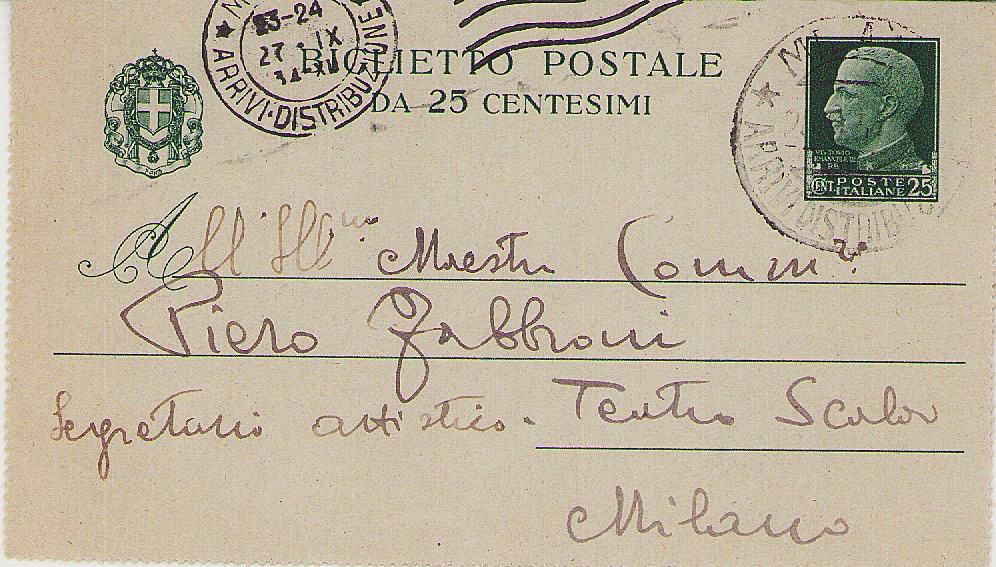 23-24
27 · IX
34-XII
ARRIVI·DISTRIBUZIONE
BIGLIETTO POSTALE
DA 25 CENTESIMI
ARRIVI DISTRIBUZ
VITTORIO
EMANUELE III
RE
CENT. POSTE ITALIANE 25
All' Ill.mo Maestro Comm.re
Piero Fabbroni
Segretario artistico - Teatro Scala
Milano